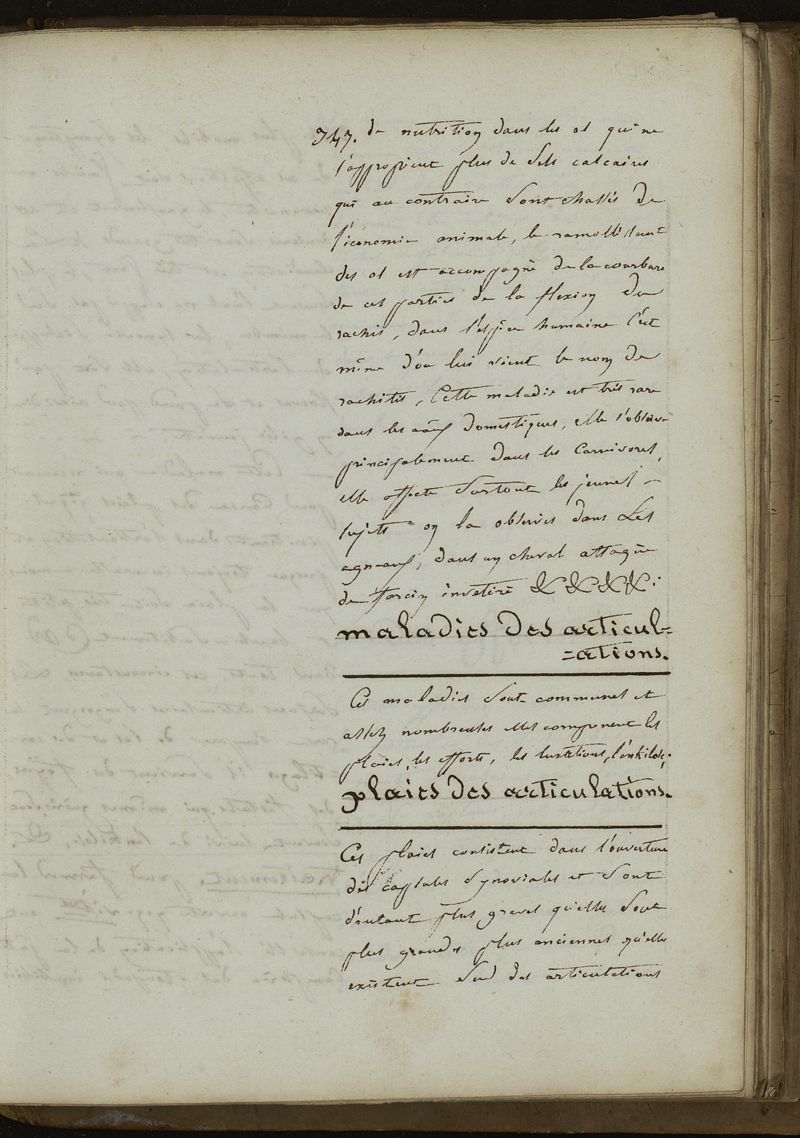 347. de nutrition dans les os qui ne
s'approprient plus de sels calcaires
qui au contraire sont chassés de
l'économie animale, le ramollissent
des os est accompagné de la courbure
de ces parties de la flexion du
rachis, dans l'espèce humaine c'est
même d'où lui vient le nom de
rachitis, Cette maladie est très rare
dans les domestiques, elle s'observe
principalement dans les Carnivores,
elle affecte surtout les jeunes
sujets on la observée dans Les
agneaux, dans un cheval attaqué
de farcin invétéré &&&&.
maladies des articul=
=ations.
Ces maladies sont communes et
assez nombreuses elles comprennent les
plaies, les efforts, les luxations, l'enkilose.
plaies des articulations.
Ces plaies consistent dans l'ouverture
des capsules synoviales et sont
d'autant plus graves qu'elles sont
plus grandes plus anciennes qu'elles
existent sur des articulations